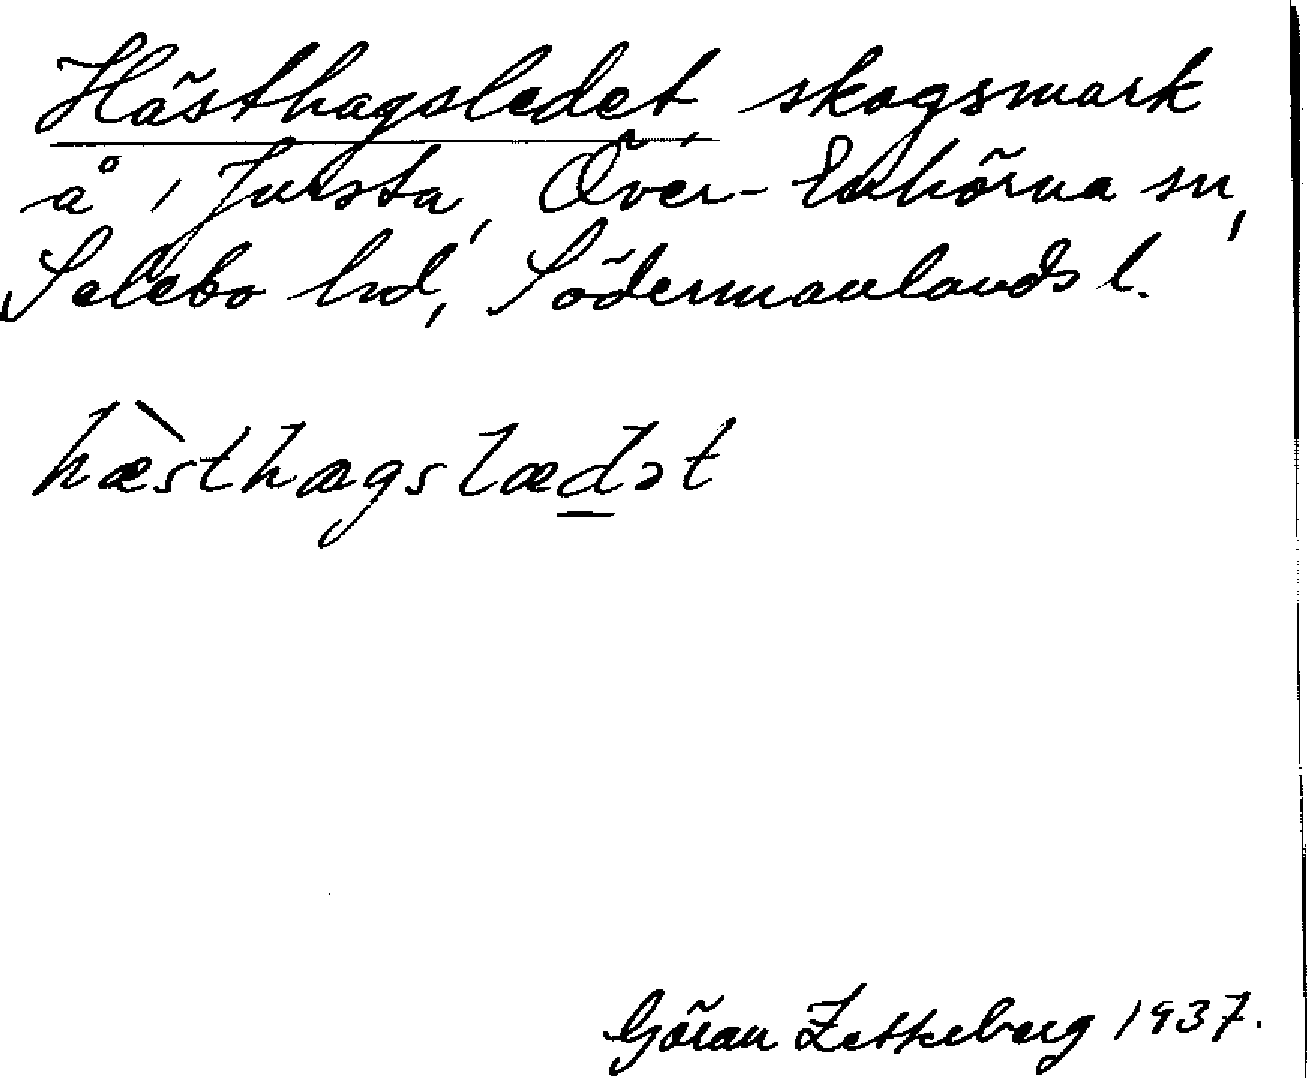 Hästhagsledet skogsmark
å 1 Jursta, Över-Enhörna sn,
Selebo hd, Södermanlands l.
hæ̀sthagslædət
Göran Zetterberg 1937.